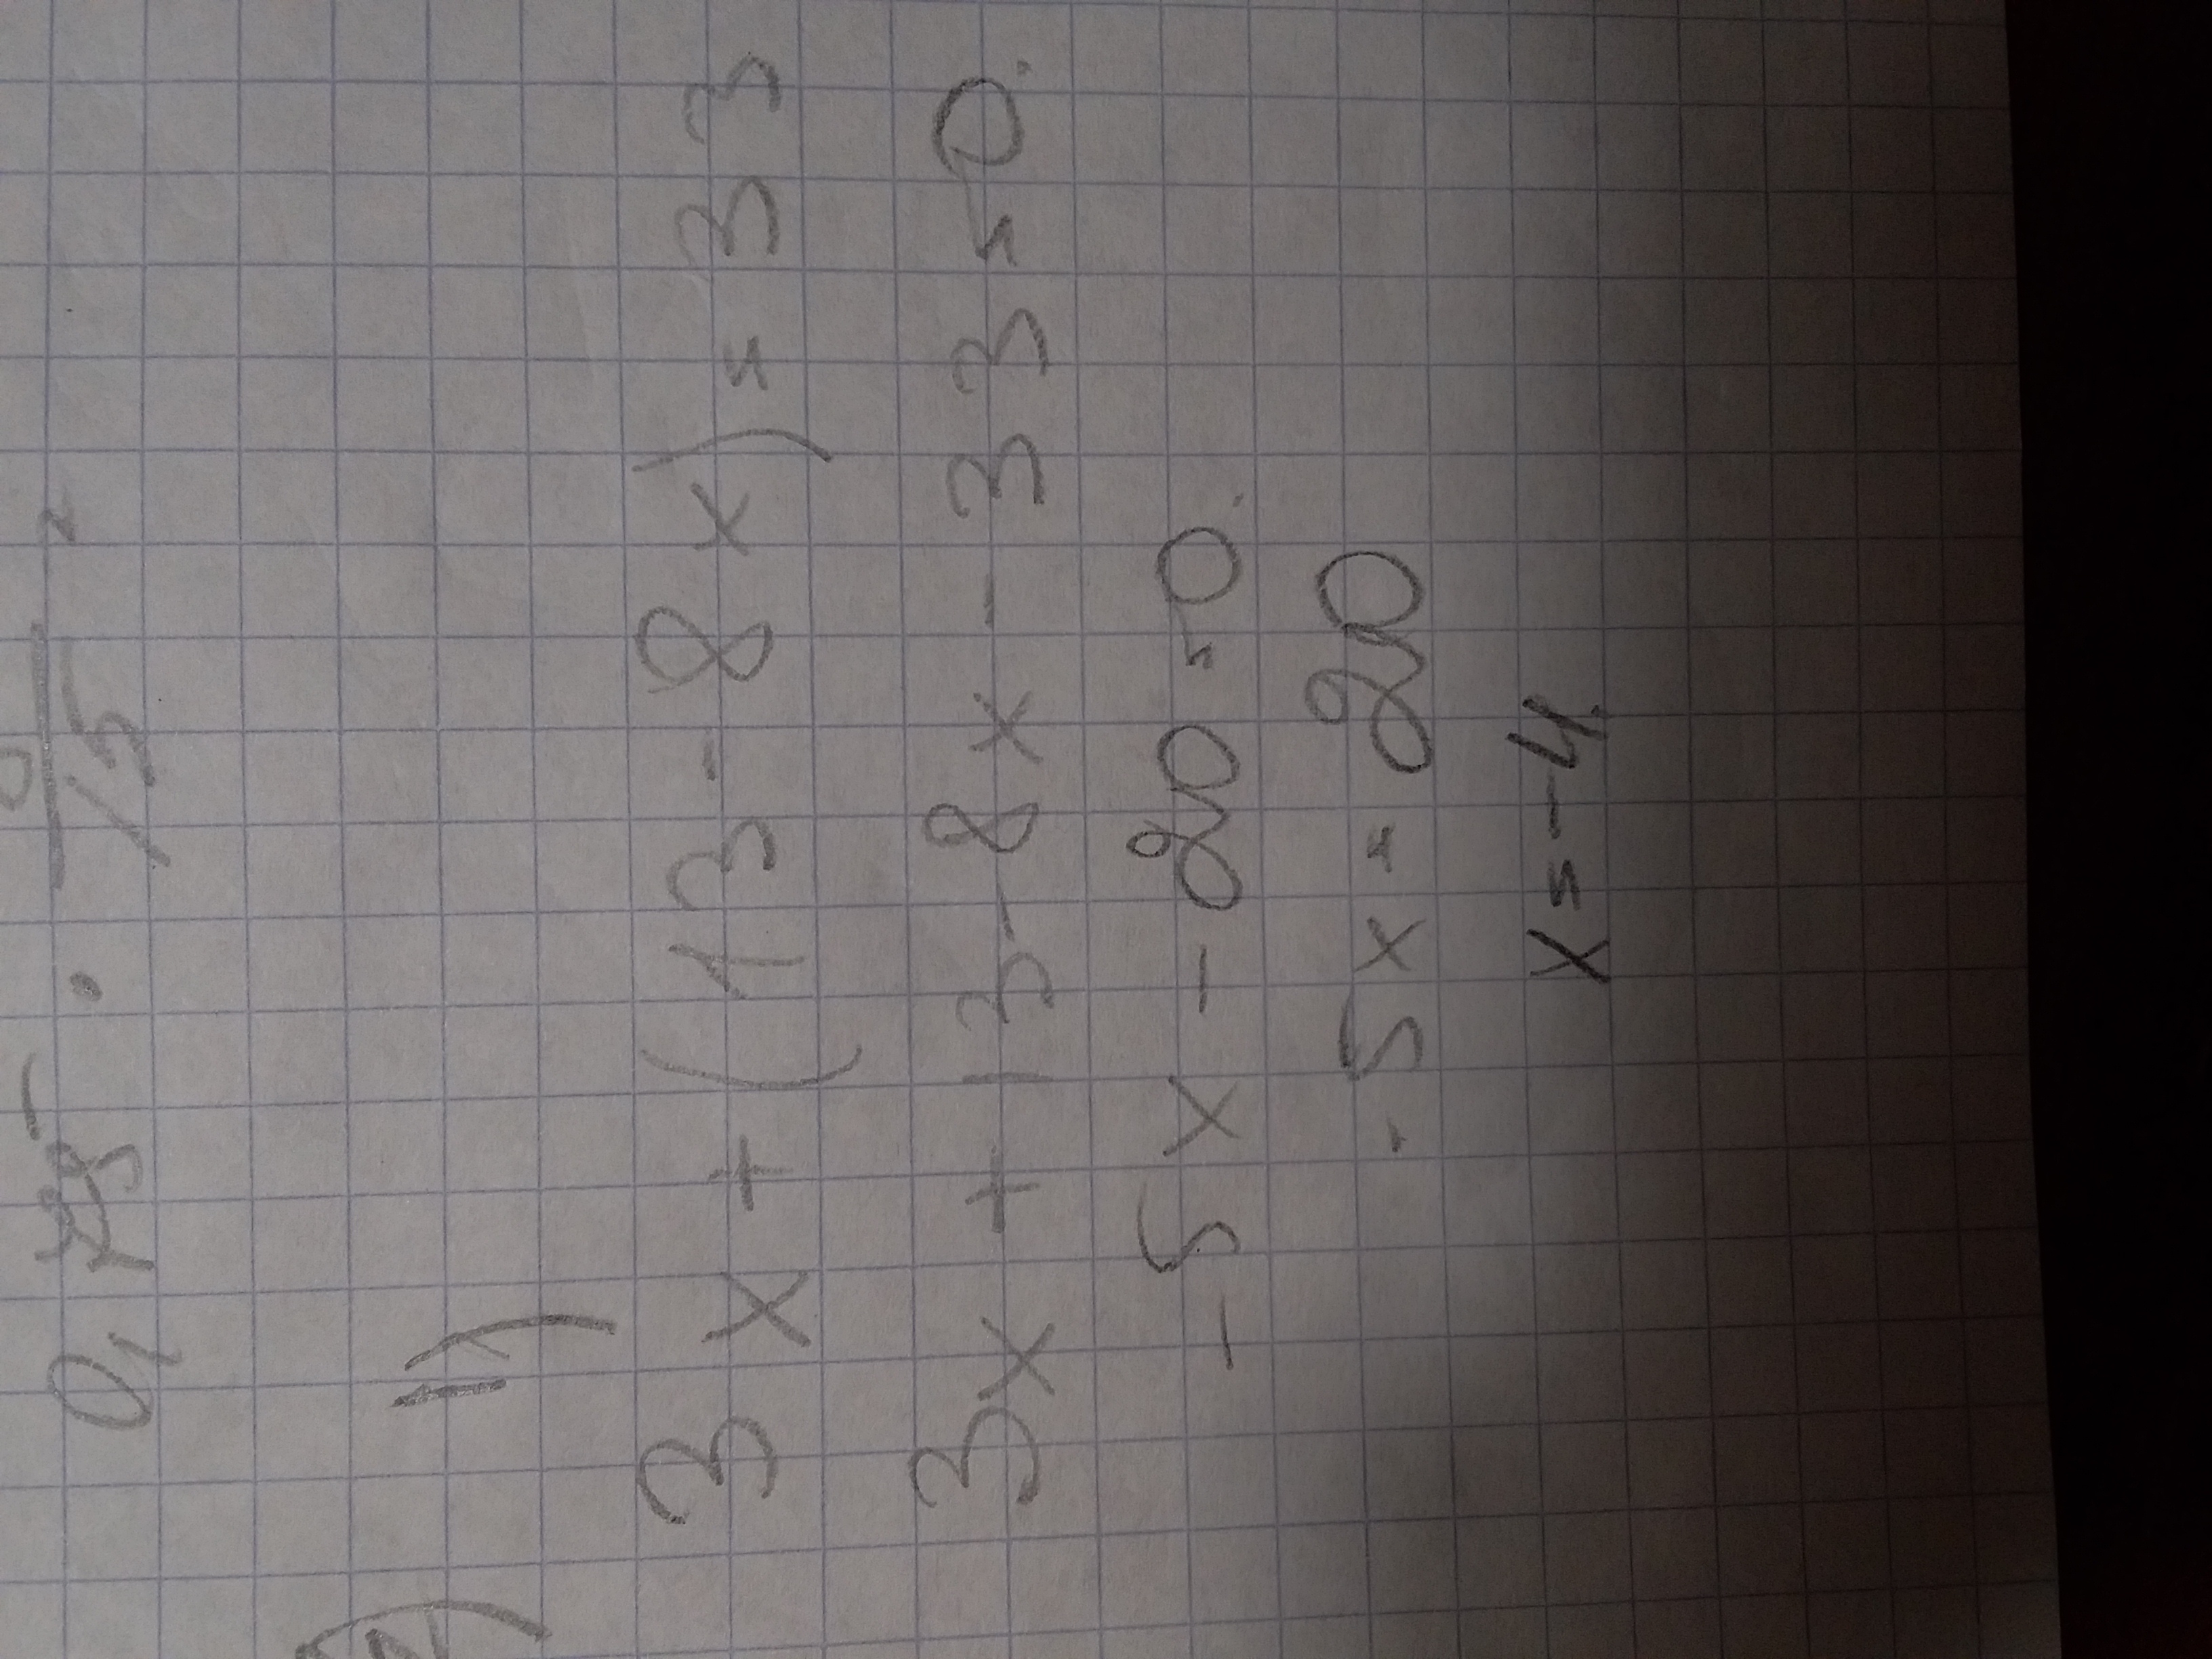 1)
3x + (13 - 8x) = 33
3x + 13 - 8x - 33 = 0.
-5x - 20 = 0.
-5x = 20
x = -4.